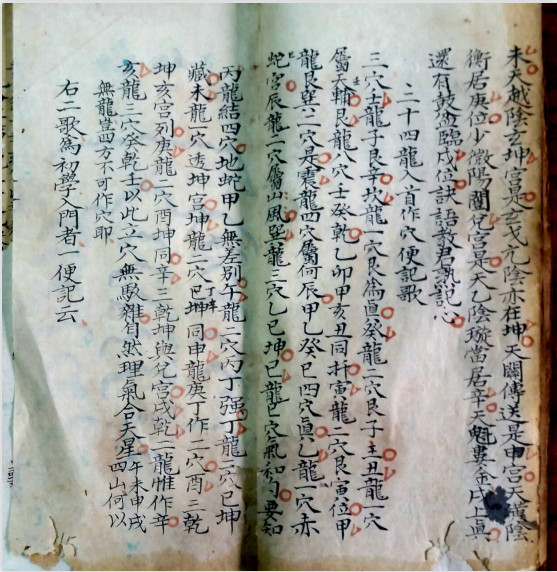 未天越陰玄坤宮是玄戈亢陰亦在坤天關傳送是申宮天陰
衡居庚位少微陽闌兌宮是天乙陰璇當居辛天魁婁金戌上與
還有鼓盆臨戌位訣語教君熟記心
二十四龍入首作穴便記歌
三穴壬龍子艮辛坎龍一穴艮為真癸龍二穴艮子主丑龍一穴
屬天輔艮龍八穴壬癸乾乙卯甲亥丑同扦寅龍二穴艮寅位甲
龍艮巽六一穴是震龍四穴屬何辰甲乙癸巳四穴真乙龍一穴赤
蛇宮辰龍一穴屬山風巽龍三穴乙巳坤巳龍巳穴氣和同要知
丙龍結四穴地蛇甲乙無差別午龍二穴丙丁强丁龍二穴巳坤
藏未龍一穴透坤宮坤龍二穴巳坤同申龍庚丁作二穴酉三乾
坤亥宮列庚龍二穴酉坤同辛三乾坤與兌宮戌乾一龍惟作辛
亥龍六穴癸乾壬以此立穴無駁雜自然理氣合天星午未申戌四山何以
無龍豈四方不可作穴耶
右二歌為初學入門者一便記云